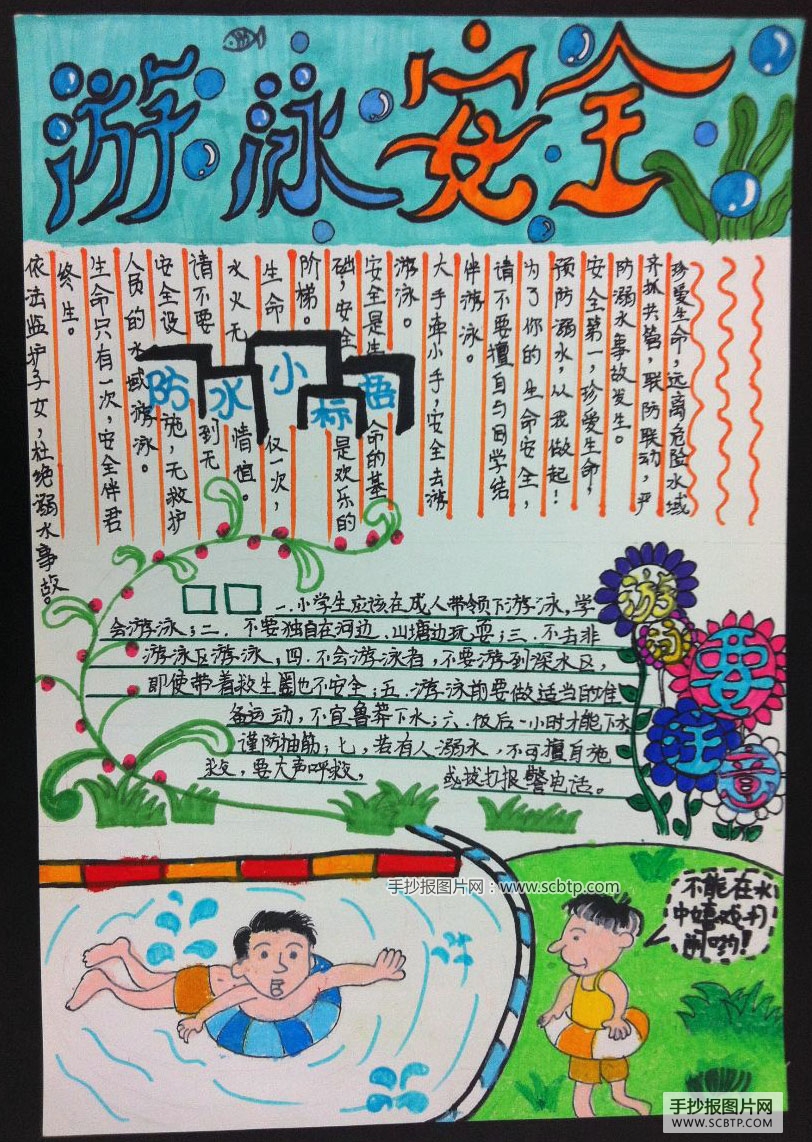 游泳安全
珍爱生命，远离危险水域
齐抓共管，联防联动，严
防溺水事故发生。
安全第一，珍爱生命，
预防溺水，从我做起！
为了你的生命安全，
请不要擅自与同学结
伴游泳。
大手牵小手，安全去游
游泳。
安全是生命的基
础，安全是欢乐的
阶梯。
生命仅一次，
水火无情谊。
请不要到无
安全设施，无救护
人员的水域游泳。
生命只有一次，安全伴君
终生。
依法监护子女，杜绝溺水事故。
防水小标语
一.小学生应该在成人带领下游泳，学
会游泳；二.不要独自在河边、山塘边玩耍；三.不去非
游泳区游泳，四.不会游泳者，不要游到深水区，
即使带着救生圈也不安全；五.游泳前要做适当的准
备运动，不宜鲁莽下水；六.饭后一小时才能下水
谨防抽筋；七，若有人溺水，不可擅自施
救，要大声呼救，或拨打报警电话。
游泳要注意
不能在水
中嬉戏打
闹哟！
手抄报图片网：www.scbtp.com
手抄报图片网
WWW.SCBTP.COM